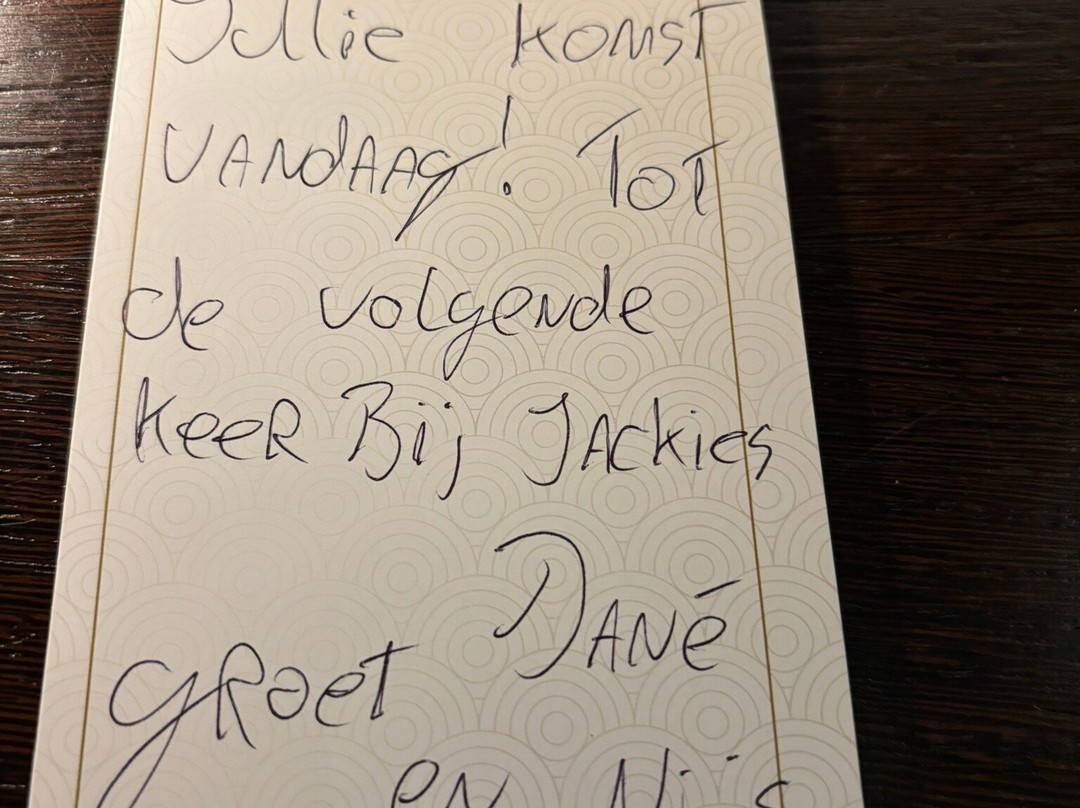 Jullie komst
vandaag! Tot
de volgende
keer Bij Jackies
Dané
groet
en